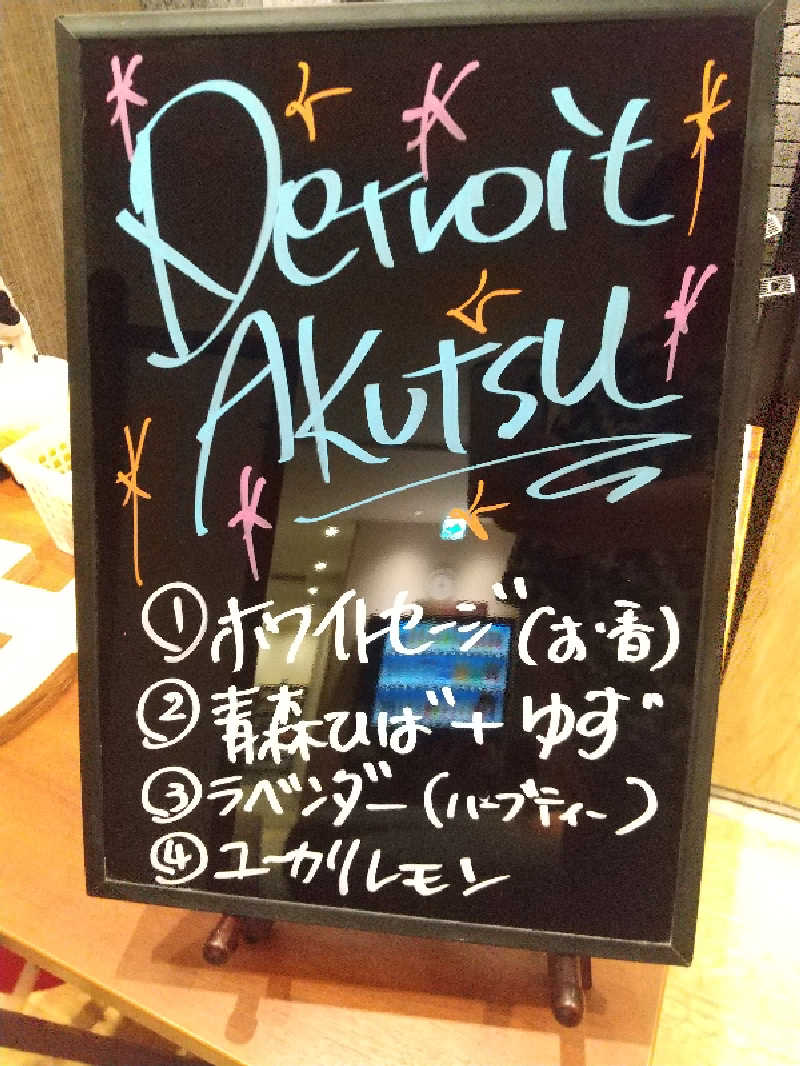 Detroit
AKutsu
① ホワイトセージ(お・香)
② 青森ひば+ゆず
③ ラベンダー(ハーブティー)
④ ユーカリレモン